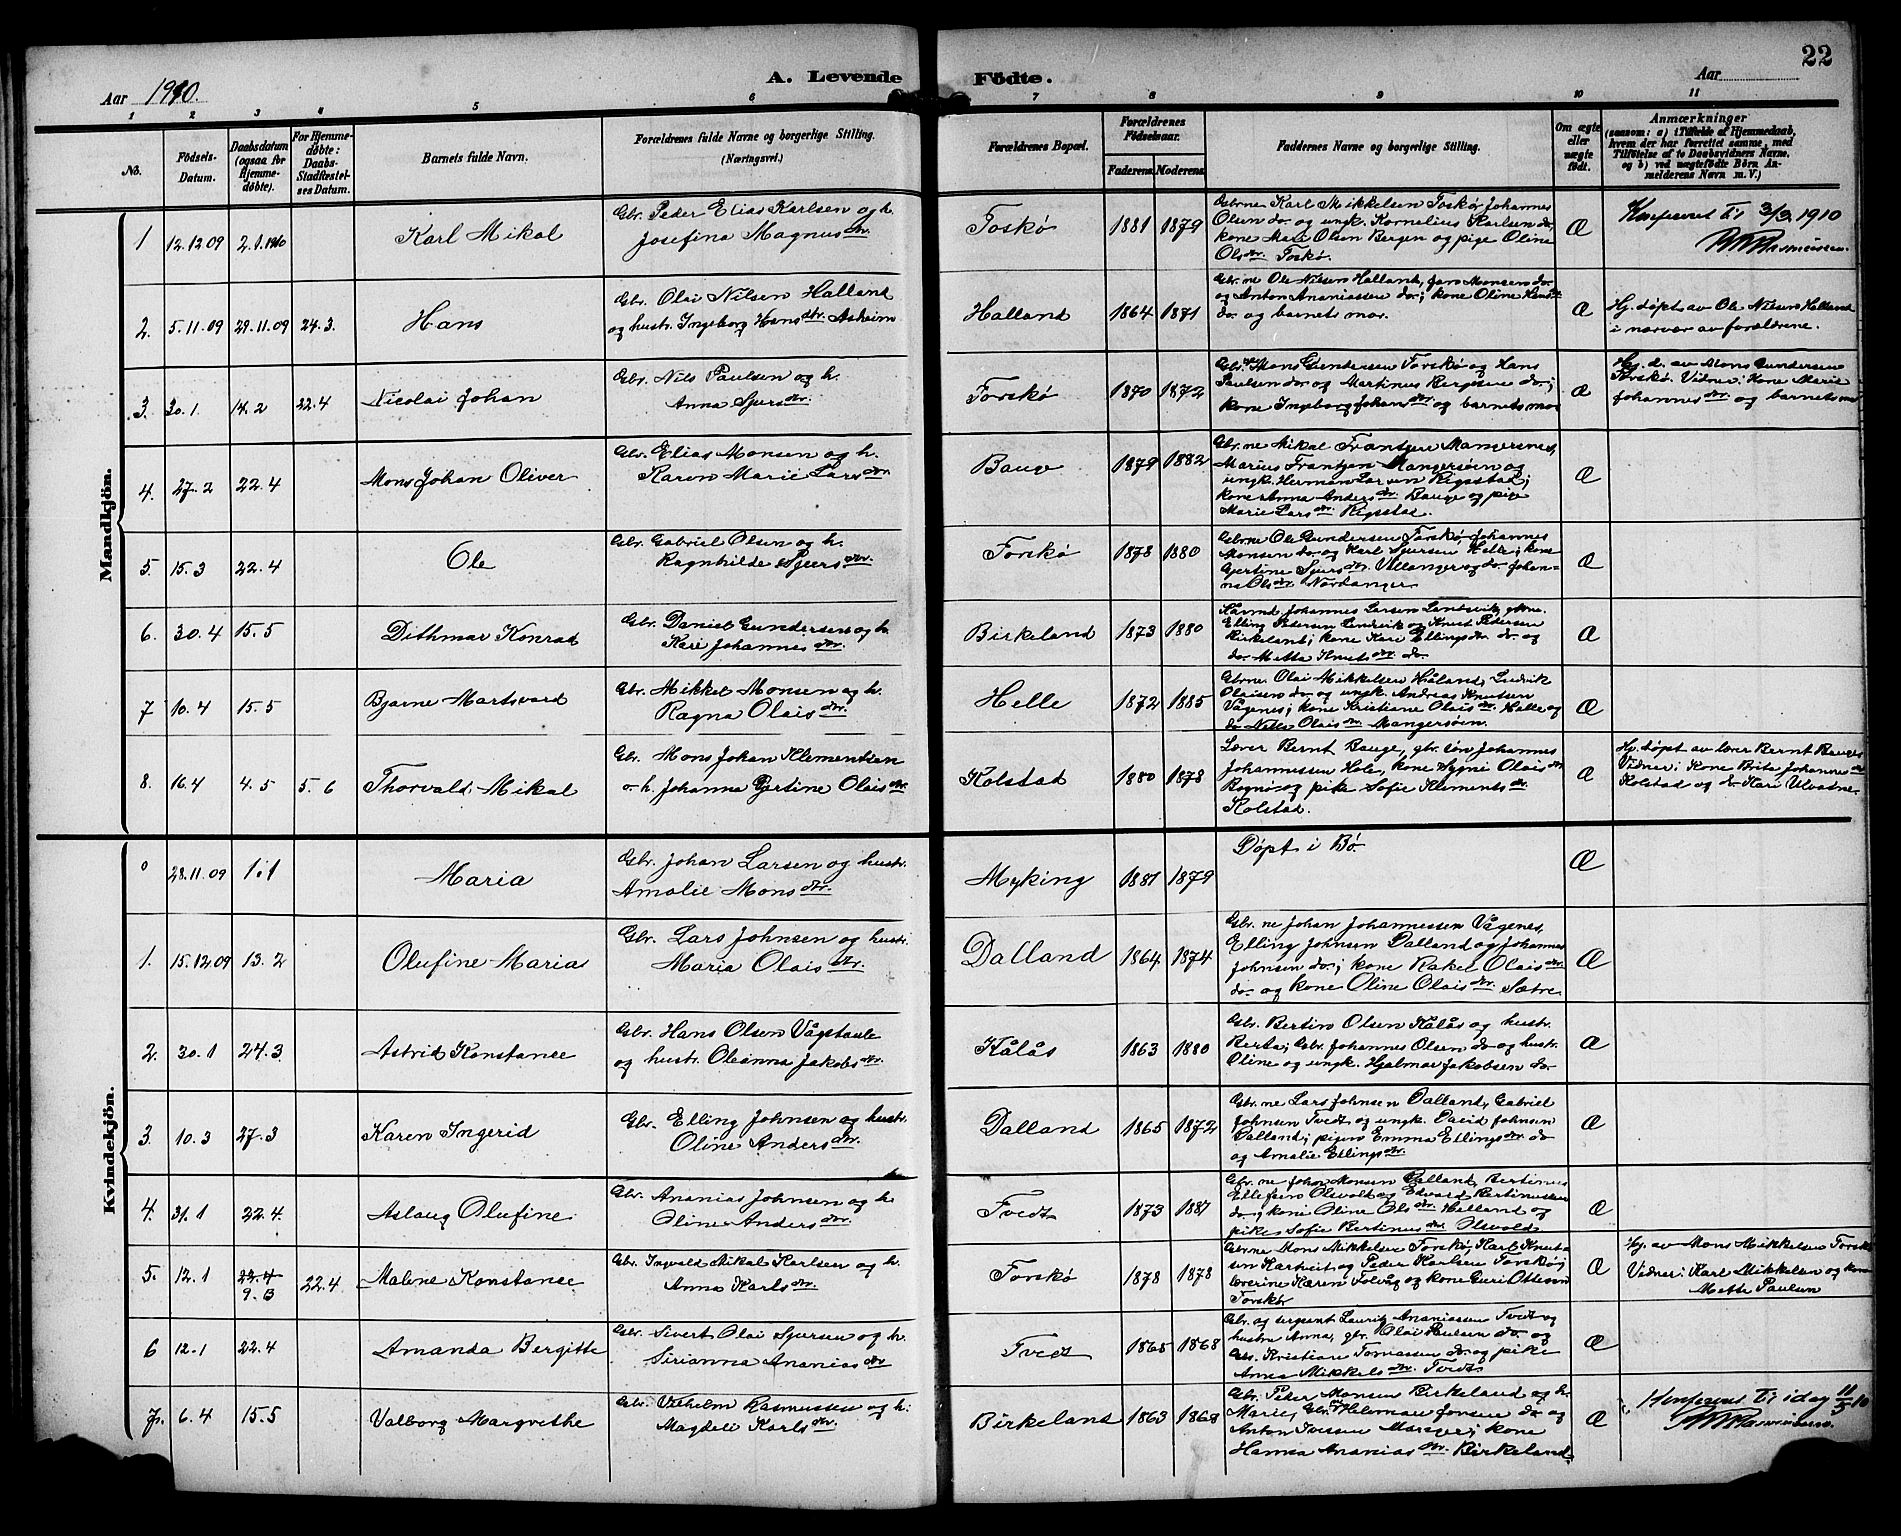 22
A. Levende Födte.
Aar 1910.
Aar
1 2 3 4 5 6 7 8 9 10 11
No.
Födsels-Datum.
Daabsdatum (ogsaa for hjemmedöbte).
For Hjemmedøbte: Daabs-Stadfæstelses Datum.
Barnets fulde Navn.
Forældrenes fulde Navne og borgerlige Stilling. (Næringsvei.)
Forældrenes Bopæl.
Forældrenes Födselsaar.
Faderens Moderens
Faddernes Navne og borgerlige Stilling.
Om ægte eller uægte födt.
Anmærkninger (saasom: a) i Tilfælde af Hjemmedaab, hvem der har forrettet samme, med Tilföielse af to Daabsvidners Navne, og b) ved uægtefödte Börn Anmelderens Navn m. V.)
Mandkjön.
1 12.12.09 2.1.1910 Karl Mikal
Gbr. Peder Elias Karlsen og h.
Josefina Magnusdtr.
Foskø 1881 1879
Gbrne Karl Mikkelsen Foskø, Johannes
Olsen do. og ungk. Kornelius Karlsen do
kone Mari Olson Bergen og pige Oline
Olsdtr. Foskø.
Æ
Konferert til 3/3 1910
2. 5.11.09 29.11.09 24.3. Hans
Gbr. Olai Nilsen Halland
og hustr. Ingeborg Hansdtr. Askeim
Halland 1864 1871
Gbr.ne Ole Nilsen Halland, Jens Monsen do.
og Anton Ananiassen do.; kone Oline Hansdtr.
do. og barnets mor.
Æ
Hj. døpt av Ole Nilsen Halland
i nærvær av forældrene.
3. 30.1. 14.2 22.4 Nicolai Johan
Gbr. Nils Paulsen og h.
Anna Sjursdtr.
Forskø 1870 1872
Gbr. Mons Gundersen Forskø og Hans
Paulsen do. og Martinus Bergesen do.;
kone Ingeborg Johansdtr og barnets mor
Æ
Hj. d. av Mons Gundersen
Forskø. Vidner: Kone Marie
Johannesdtr og barnets mor
4. 27.2 22.4 Mons Johan Oliver
Gbr. Elias Monsen og h.
Karen Marie Larsdtr
Bauge 1879 1882
Gbr.ne Mikal Frantzen Mangersnes,
Marius Frantzen Mangersøen og
ungk. Herman Larsen Rigsstad;
kone Anna Andersdtr. Bauge og pige
Marie Larsdtr. Rigsstad.
Æ
5. 15.3 22.4 Ole
Gbr. Gabriel Olsen og h.
Ragnhilde Sjursdtr.
Forskø 1878 1880
Gbrne Ole Gundersen Forskø, Johannes
Monsen do. og Karl Sjursen Helle; kone
Gjertine Sjursdtr. Villanger og do. Johanna
Olsdtr. Nordanger
Æ
6. 30.4 15.5 Dithmar Konrad
Gbr. Daniel Gundersen og h.
Kari Johannesdtr.
Birkeland 1873 1880
Johannes Larsen Landsvik,
Elling Pedersen Landsvik og Knut Pedersen
Birkeland; kone Kari Ellingsdtr do. og
do. Metta Knutsdtr do.
Æ
7 10.4 15.5 Bjarne Martsvard
Gbr. Mikkel Monsen og h.
Ragna Olaisdtr.
Helle 1872 1885
Gbrne Olai Mikkelsen Håland, Ludvik
Olaisen do. og ungk. Andreas Knutsen
Vågenes; kone Kristiane Olaisdtr. Helle og
do. Olaisdtr. Mangersøen.
Æ
8. 16.4 4.5 5.6 Thorvald Mikal
Gbr. Mons Johan Klementsen
o. h. Johanna Gjertine Olaisdtr
Kolstad 1880 1878
Lærer Bernt Bauge, gbr. søn Johannes
Johannessen Hole, kone Sygni Olaisdtr
Bognø og pike Sofie Klementsdtr.
Kolstad.
Æ
Hj. døpt av lærer Bernt Bauge.
Vidner: Kone Brita Johannesdtr
Kolstad og do Kari Ulvatne.
Kvindekjön.
0 28.11.09 1.1 Maria
Gbr. Johan Larsen og hustr.
Amalie Monsdtr.
Myking 1881 1879
Døpt i Bø.
Æ
1. 15.12.09 13.2 Olufine Maria
Gbr. Lars Johnsen og hustr.
Maria Olaisdtr.
Dalland 1864 1874
Gbr.ne Johan Johannessen Vågenes,
Elling Johnsen Dalland og Johannes
Johnsen do.; kone Rakel Olaisdtr.
do. og kone Oline Olaisdtr. Sætre.
Æ
2. 30.1 24.3 Astrid Konstanse
Gbr. Hans Olsen Vågstaule
og hustr. Oleanna Jakobsdtr.
Kålås 1863 1880
Gbr. Bertin Olsen Kålås og hustr.
Berta; Gbr. Johannes Olsen do. og hustr.
Oline og ungk. Hjalmar Jakobsen do.
Æ
3. 10.3 27.3 Karen Ingerid
Gbr. Elling Johnsen og hustr.
Oline Andersdtr.
Dalland 1865 1872
Gbr.ne Lars Johnsen Dalland, Gabriel
Johnsen Tvedt og ungk. David Johnsen
Dalland; piger Emma Ellingsdtr. do
og Amalie Ellingsdtr.
Æ
4. 31.1 22.4. Aslaug Olufine
Gbr. Ananias Johnsen og h.
Oline Andersdtr.
Tvedt 1873 1887
Gbr.ne Johan Monsen Dalland, Bertines
Ellefsen Olsvold og Edvard Bertinussen
do.; kone Oline Olsdtr. Helland og
pike Sofie Bertinusdtr. Olsvold
Æ
5. 12.1 22.4 9.3 22.4 Malene Konstanse
Gbr. Ingvald Mikal Karlsen og h.
Anna Karlsdtr.
Forskø 1878 1878
Gbrne Mons Mikkelsen Forskø, Karl Knutsen
Kartveit og Peder Karlsen Forskø;
lærerine Karen Tolvåg og kone Guri Ottesen
Forskø
Æ
Hj. av Mons Mikkelsen Forskø
Vidner: Karl Mikkelsen og kone
Mette Paulsen
6 12.1 22.4 Amanda Bergitte
Gbr. Sivert Olai Sjursen og h.
Sirianna Ananiasdtr
Tvedt 1865 1868
Gbr. og sergeant Lauritz Ananiassen Tvedt og
hustru Anna, gbr. Olai Paulsen do. og
Gbr. Kristian Tomassen do. og pike
Anna Mikkelsdtr. Tvedt.
Æ
7. 6.4 15.5 Valborg Margrethe
Gbr. Vilhelm Rasmussen og h.
Magdeli Karlsdtr.
Birkeland 1863 1868
Gbr. Peder Monsen Birkeland og h.
Marie, Gbr. Helmer Jonsen do. og
Anton Iversen Manger; kone
Hanna Ananiasdtr. Birkeland.
Æ
Konferert til idag 11/5 10